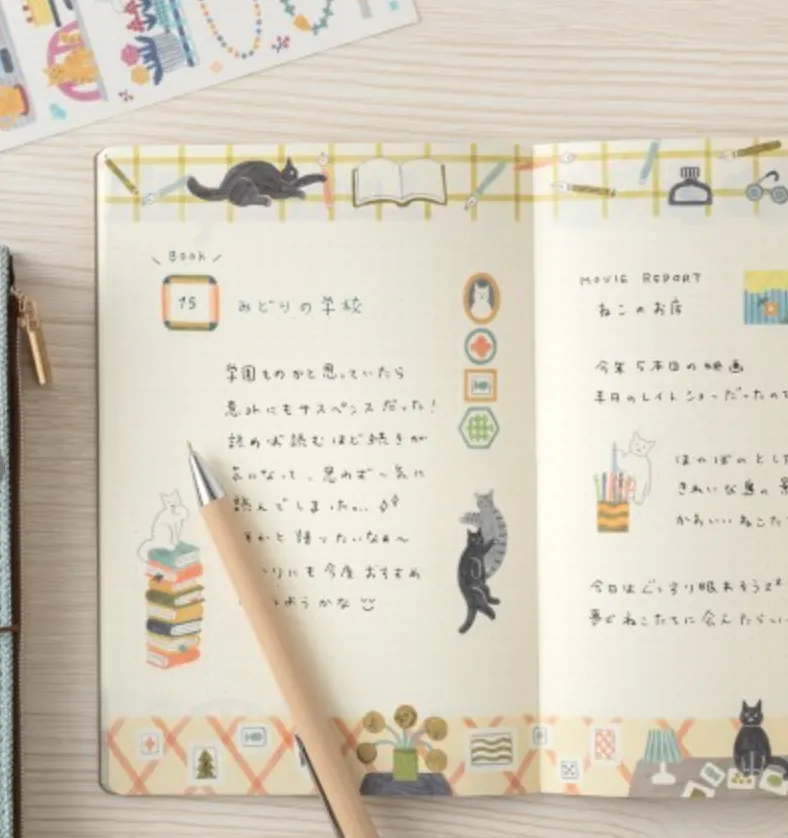 Book
15
みどりの学校
学園ものかと思っていたら
意外にもサスペンスだった!
読めば読むほど続きが
気になって、思わず一気に
読んでしまった…
かと語りたいなぁ〜
りにも今度おすすめ
ようかな
MOVIE REPORT
ねこのお店
今年5本目の映画
平日のレイトショーだったので
ほのぼのとした
きれいな島の景
かわいいねこた
今日はぐっすり眠れそうzz
夢でねこたちに会えたらいい